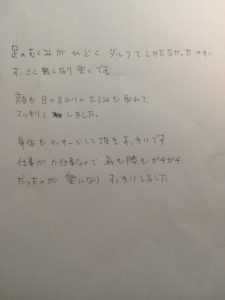 足のむくみがひどくダルクてしかたなかったのが
すごく軽くなり楽です
顔も目のまわりのたるみも取れて
スッキリとしました。
身体もマッサージして頂きすっきりです
仕事が力仕事なので肩も腰もガチガチ
だったのが楽になりすっきりしました